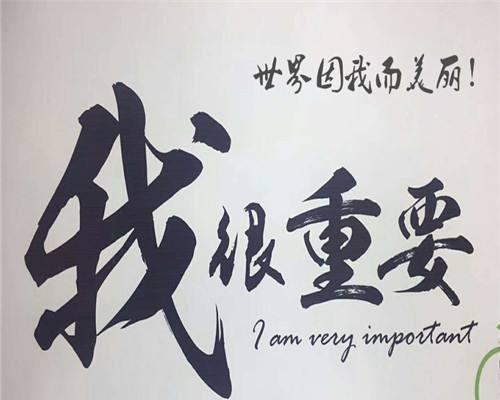 世界因我而美丽!
我很重要
I am very important